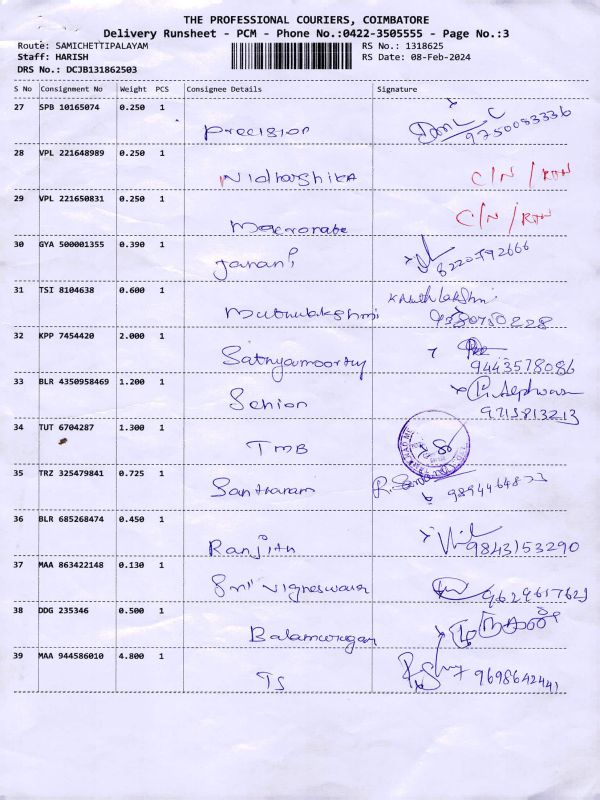 THE PROFESSIONAL COURIERS, COIMBATORE
Delivery Runsheet - PCM - Phone No.:0422-3505555 - Page No.:3
Route: SAMICHETTIPALAYAM RS No.: 1318625
Staff: HARISH RS Date: 08-Feb-2024
DRS No.: DCJB131862503
S No Consignment No Weight PCS Consignee Details Signature
27 SPB 10165074 0.250 1 Precision 9750083336
28 VPL 221648989 0.250 1 Nidharshika C/N / RTN
29 VPL 221650831 0.250 1 C/N / RTN
30 GYA 500001355 0.390 1 Janani 8220792666
31 TSI 8104638 0.600 1 Muthulakshmi
32 KPP 7454420 2.000 1 Sathyamoorthy 9443578086
33 BLR 4350958469 1.200 1 9715813213
34 TUT 6704287 1.300 1 TMB
35 TRZ 325479841 0.725 1 Santharam
36 BLR 685268474 0.450 1 Ranjith 9843153290
37 MAA 863422148 0.130 1 Sri Vigneswara 9629617623
38 DDG 235346 0.500 1 Balamurugan
39 MAA 944586010 4.800 1 TS 9698642441